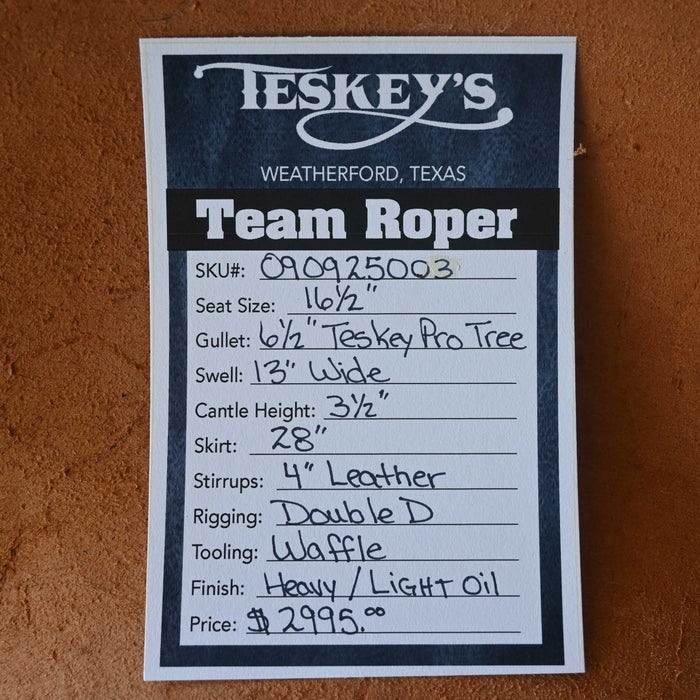 TESKEY'S
WEATHERFORD, TEXAS
Team Roper
SKU#: 090925003
Seat Size: 16 1/2"
Gullet: 6 1/2" Teskey Pro Tree
Swell: 13" Wide
Cantle Height: 3 1/2"
Skirt: 28"
Stirrups: 4" Leather
Rigging: Double D
Tooling: Waffle
Finish: Heavy / LIGHT Oil
Price: $ 2995.00